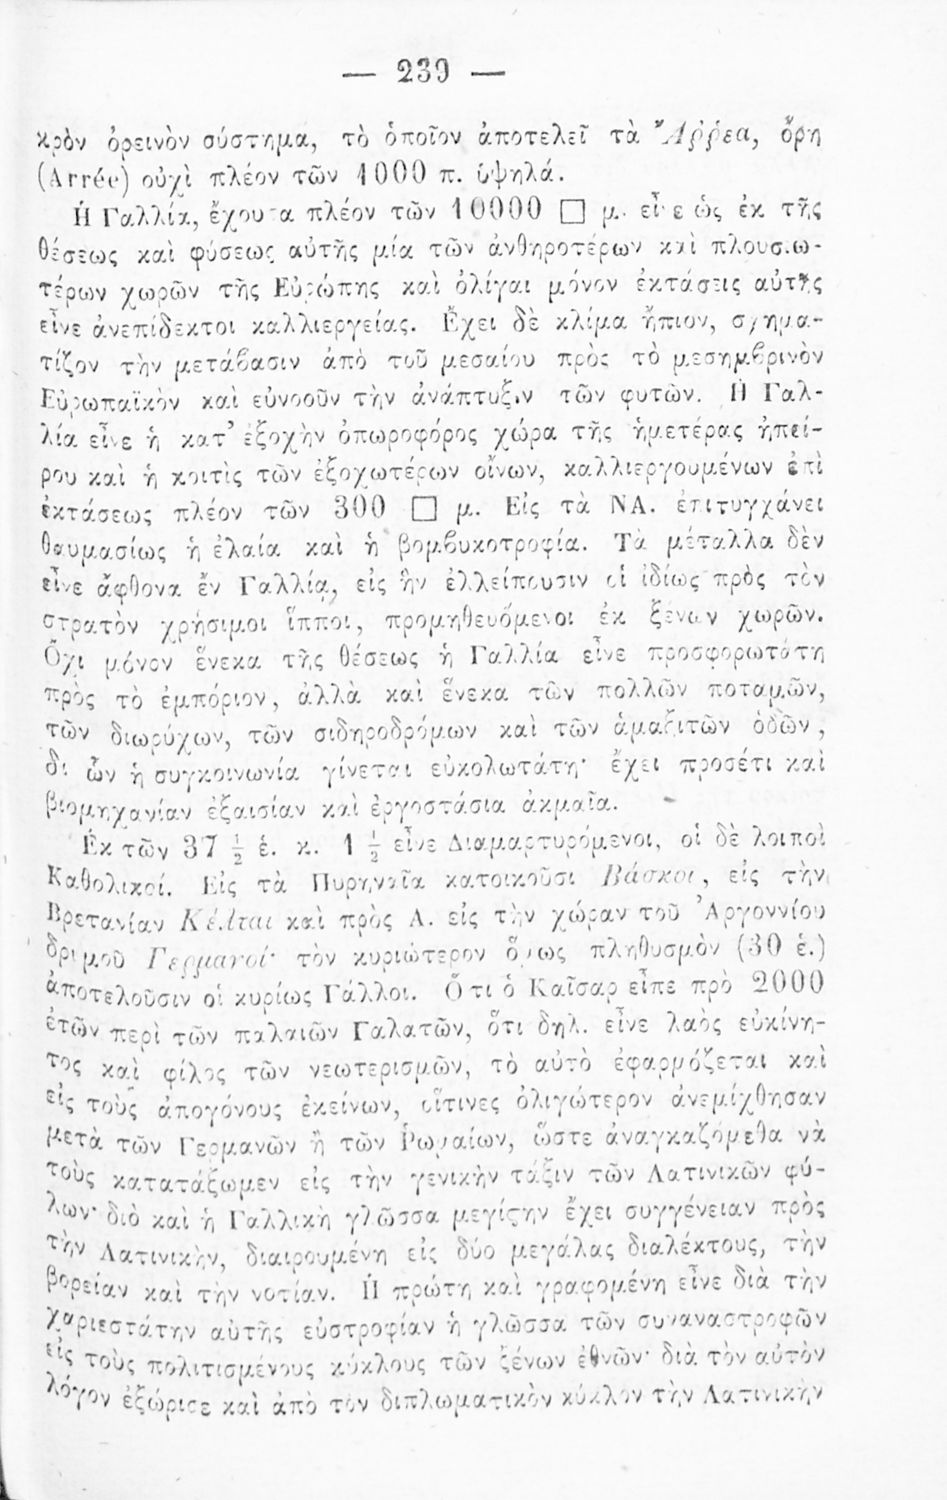 — 239 —
κρὸν ὀρεινὸν σύστημα, τὸ ὁποῖον ἀποτελεῖ τὰ Ἄῤῥεα, ὄρη
(Arrée) οὐχὶ πλέον τῶν 1000 π. ὑψηλά.
Ἡ Γαλλία, ἔχουσα πλέον τῶν 10000 □ μ. εἶνε ὡς ἐκ τῆς
θέσεως καὶ φύσεως αὐτῆς μία τῶν ἀνθηροτέρων καὶ πλουσιω-
τέρων χωρῶν τῆς Εὐρώπης καὶ ὀλίγαι μόνον ἐκτάσεις αὐτῆς
εἶνε ἀνεπίδεκτοι καλλιεργείας. Ἔχει δὲ κλίμα ἤπιον, σχημα-
τίζον τὴν μετάβασιν ἀπὸ τοῦ μεσαίου πρὸς τὸ μεσημβρινὸν
Εὐρωπαϊκὸν καὶ εὐνοοῦν τὴν ἀνάπτυξιν τῶν φυτῶν. Ἡ Γαλ-
λία εἶνε ἡ κατ’ ἐξοχὴν ὀπωροφόρος χώρα τῆς ἡμετέρας ἠπεί-
ρου καὶ ἡ κοιτὶς τῶν ἐξοχωτέρων οἴνων, καλλιεργουμένων ἐπὶ
ἐκτάσεως πλέον τῶν 300 □ μ. Εἰς τὰ ΝΑ. ἐπιτυγχάνει
θαυμασίως ἡ ἐλαία καὶ ἡ βομβυκοτροφία. Τὰ μέταλλα δὲν
εἶνε ἄφθονα ἐν Γαλλίᾳ, εἰς ἣν ἐλλείπουσιν οἱ ἰδίως πρὸς τὸν
στρατὸν χρήσιμοι ἵπποι, προμηθευόμενοι ἐκ ξένων χωρῶν.
Ὄχι μόνον ἕνεκα τῆς θέσεως ἡ Γαλλία εἶνε προσφορωτάτη
πρὸς τὸ ἐμπόριον, ἀλλὰ καὶ ἕνεκα τῶν πολλῶν ποταμῶν,
τῶν διωρύχων, τῶν σιδηροδρόμων καὶ τῶν ἁμαξιτῶν ὁδῶν,
δι ὧν ἡ συγκοινωνία γίνεται εὐκολωτάτη· ἔχει προσέτι καὶ
βιομηχανίαν ἐξαισίαν καὶ ἐργοστάσια ἀκμαῖα.
Ἐκ τῶν 37 ½ ἑ. κ. 1 ½ εἶνε Διαμαρτυρόμενοι, οἱ δὲ λοιποὶ
Καθολικοί. Εἰς τὰ Πυρηναῖα κατοικοῦσι Βάσκοι, εἰς τὴν
Βρετανίαν Κέλται καὶ πρὸς Α. εἰς τὴν χώραν τοῦ Ἀργοννίου
δρυμοῦ Γερμανοί· τὸν κυριώτερον ὅμως πληθυσμὸν (30 ἑ.)
ἀποτελοῦσιν οἱ κυρίως Γάλλοι. Ὅ τι ὁ Καῖσαρ εἶπε πρὸ 2000
ἐτῶν περὶ τῶν παλαιῶν Γαλατῶν, ὅτι δηλ. εἶνε λαὸς εὐκίνη-
τος καὶ φίλος τῶν νεωτερισμῶν, τὸ αὐτὸ ἐφαρμόζεται καὶ
εἰς τοὺς ἀπογόνους ἐκείνων, οἵτινες ὀλιγώτερον ἀνεμίχθησαν
μετὰ τῶν Γερμανῶν ἢ τῶν Ῥωμαίων, ὥστε ἀναγκαζόμεθα νὰ
τοὺς κατατάξωμεν εἰς τὴν γενικὴν τάξιν τῶν Λατινικῶν φύ-
λων· διὸ καὶ ἡ Γαλλικὴ γλῶσσα μεγίςην ἔχει συγγένειαν πρὸς
τὴν Λατινικὴν, διαιρουμένη εἰς δύο μεγάλας διαλέκτους, τὴν
βορείαν καὶ τὴν νοτίαν. Ἡ πρώτη καὶ γραφομένη εἶνε διὰ τὴν
χαριεστάτην αὐτῆς εὐστροφίαν ἡ γλῶσσα τῶν συναναστροφῶν
εἰς τοὺς πολιτισμένους κύκλους τῶν ξένων ἐθνῶν· διὰ τὸν αὐτὸν
λόγον ἐξώρισε καὶ ἀπὸ τὸν διπλωματικὸν κύκλον τὴν Λατινικὴν